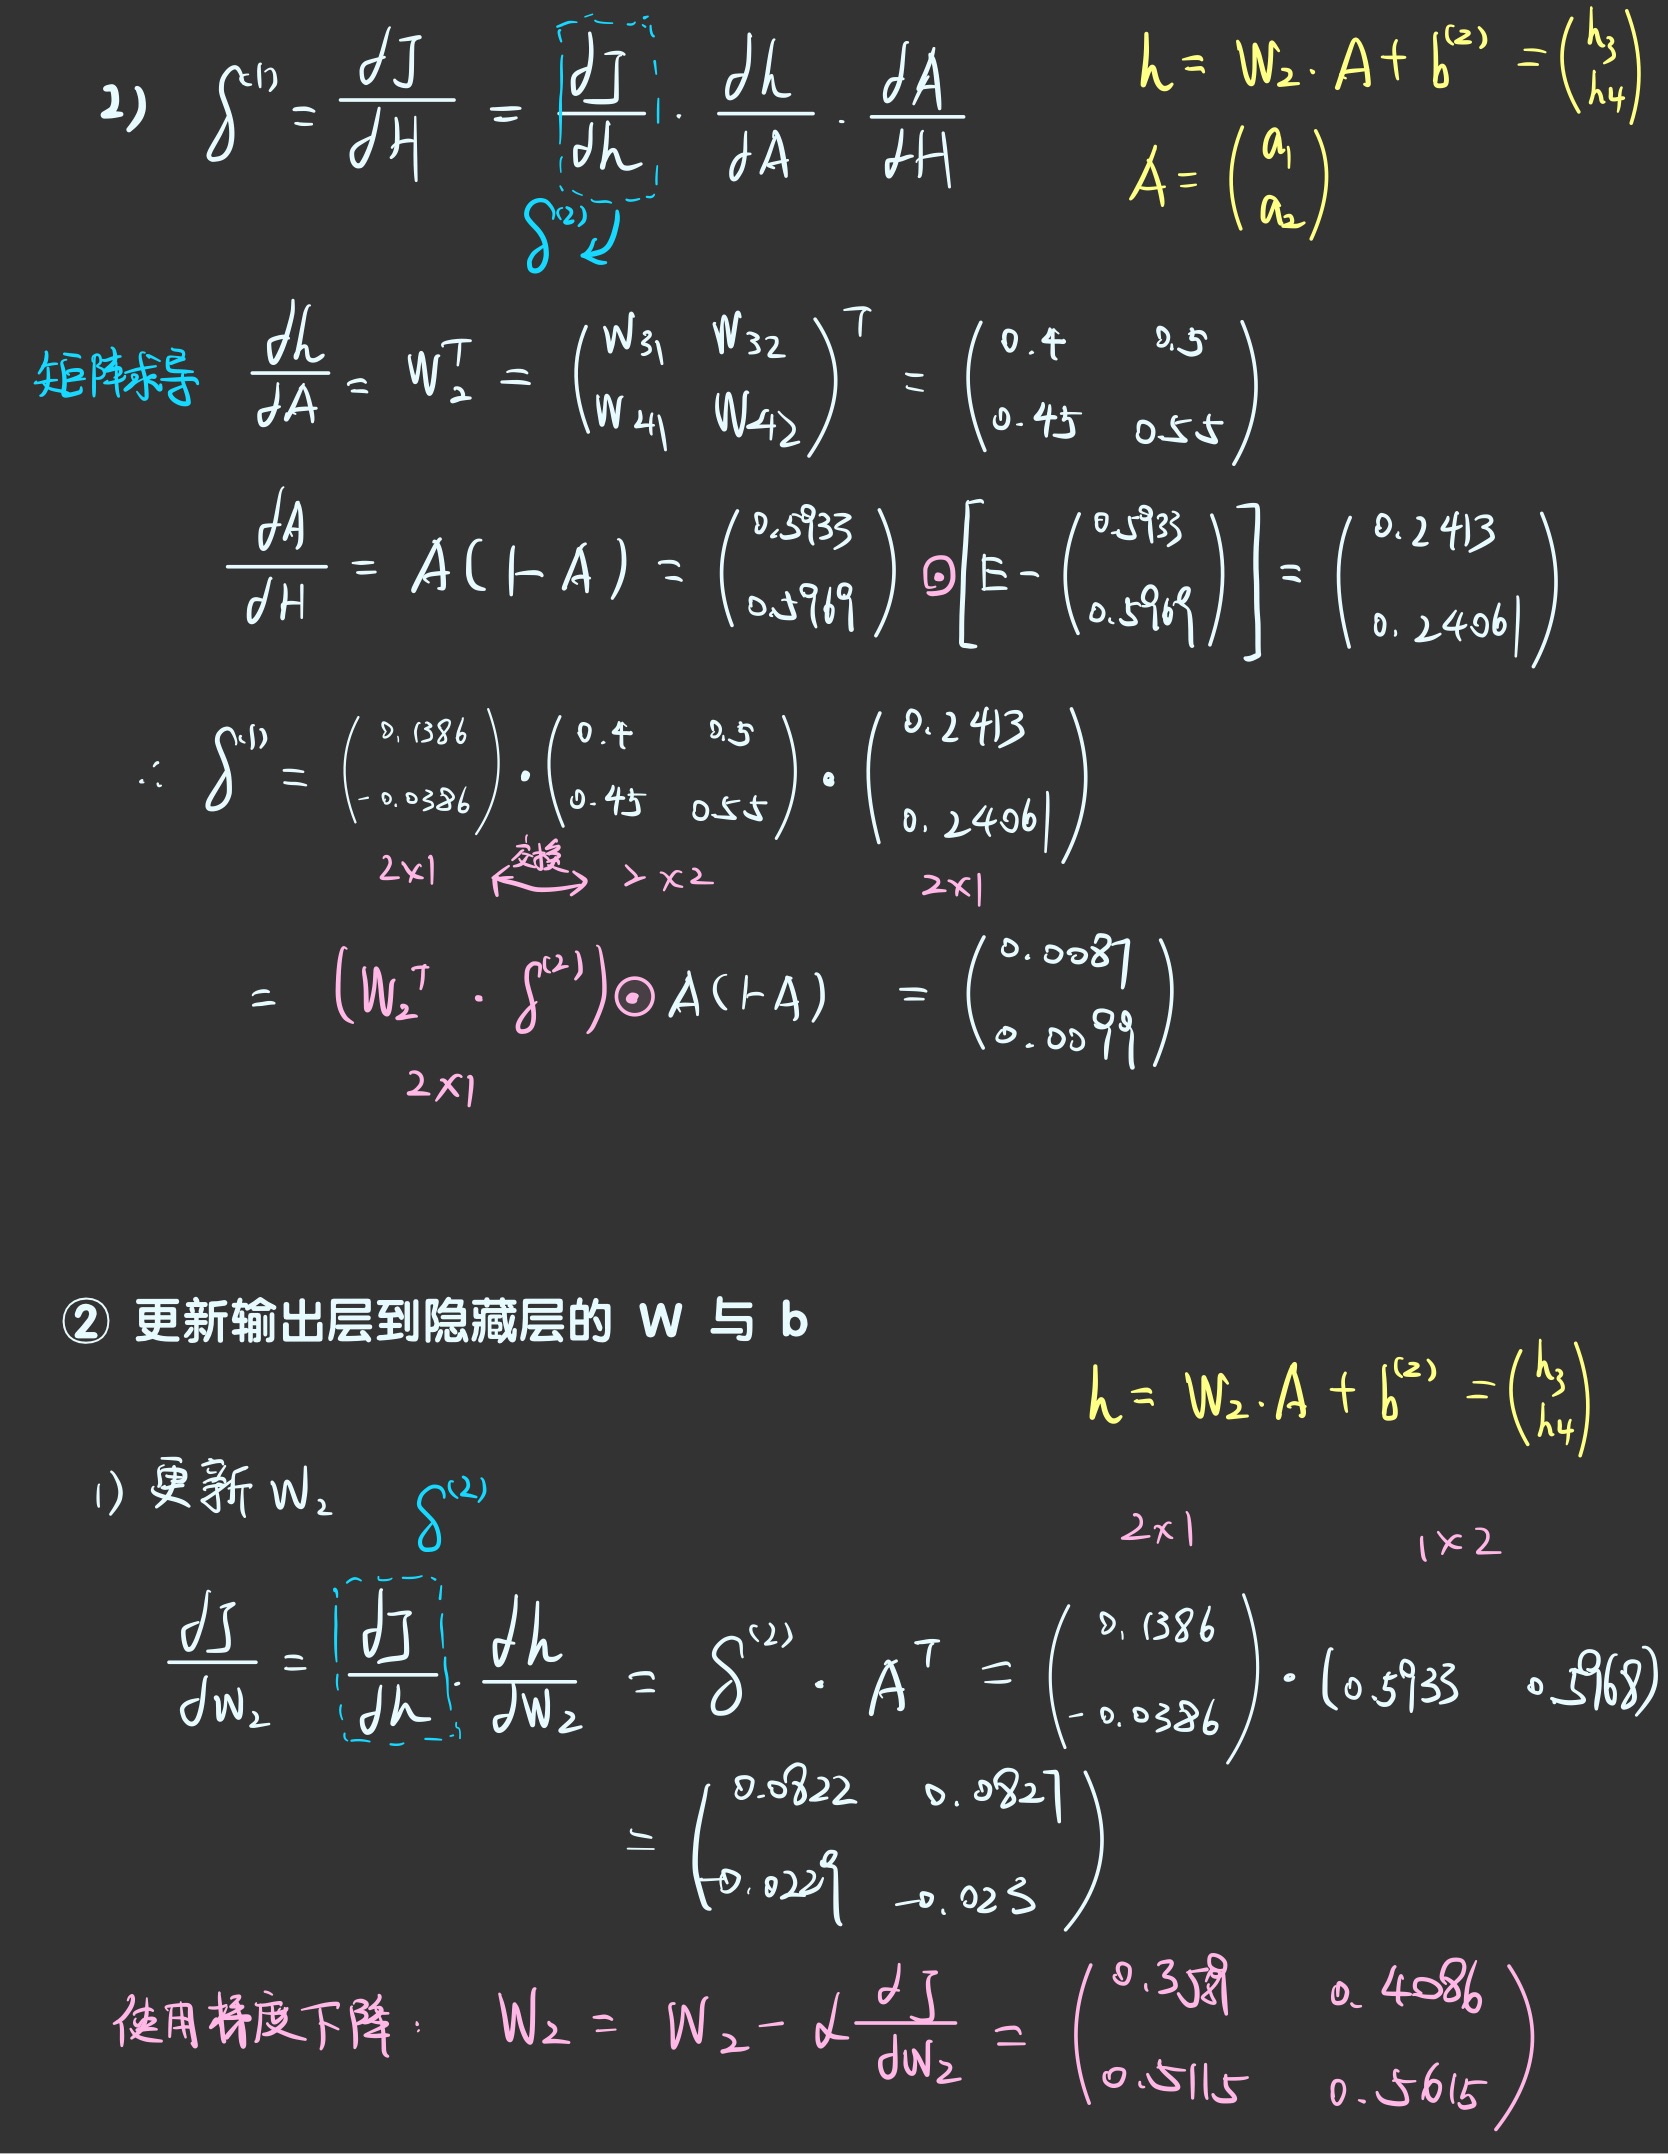 2) δ⁽¹⁾ = dJ/dH = dJ/dh · dh/dA · dA/dH
h = W₂ · A + b⁽²⁾ = (h₃ h₄)
A = (a₁ a₂)
δ⁽²⁾
矩阵求导 dh/dA = W₂ᵀ = (W₃₁ W₃₂ W₄₁ W₄₂)ᵀ = (0.4 0.5 0.45 0.55)
dA/dH = A(1-A) = (0.5933 0.5969) ⊙ [E - (0.5933 0.5969)] = (0.2413 0.24061)
∴ δ⁽¹⁾ = (0.1386 -0.0386) · (0.4 0.5 0.45 0.55) · (0.2413 0.24061)
2×1 交换 2×2 2×1
= (W₂ᵀ · δ⁽²⁾) ⊙ A(1-A) = (0.0087 0.0099)
2×1
② 更新输出层到隐藏层的 W 与 b
h = W₂ · A + b⁽²⁾ = (h₃ h₄)
1) 更新 W₂
δ⁽²⁾
2×1 1×2
dJ/dW₂ = dJ/dh · dh/dW₂ = δ⁽²⁾ · Aᵀ = (0.1386 -0.0386) · (0.5933 0.5968)
= (0.0822 0.0827 -0.0229 -0.023)
使用梯度下降: W₂ = W₂ - α dJ/dW₂ = (0.3589 0.4086 0.5115 0.5615)